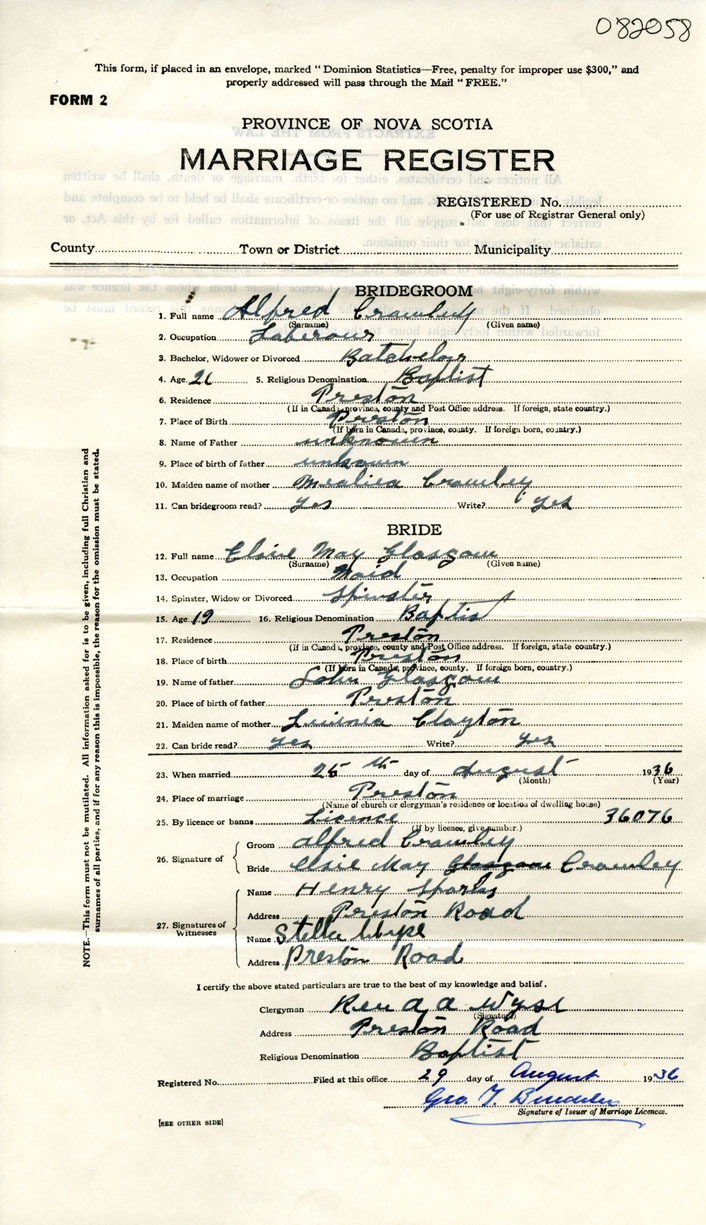 082058
This form, if placed in an envelope, marked "Dominion Statistics—Free, penalty for improper use $300," and
properly addressed will pass through the Mail "FREE."
FORM 2
PROVINCE OF NOVA SCOTIA
MARRIAGE REGISTER
REGISTERED No.
(For use of Registrar General only)
County Town or District Municipality
BRIDEGROOM
1. Full name Alfred Crawley
(Surname) (Given name)
2. Occupation Laberour
3. Bachelor, Widower or Divorced Batchelor
4. Age 21 5. Religious Denomination Baptist
6. Residence Preston
(If in Canada, province, county and Post Office address. If foreign, state country.)
7. Place of Birth Preston
(If born in Canada, province, county. If foreign born, country.)
8. Name of Father unknown
9. Place of birth of father unknown
10. Maiden name of mother Crawley
11. Can bridegroom read? yes Write? yes
BRIDE
12. Full name Elsie May Glasgow
(Surname) (Given name)
13. Occupation Maid
14. Spinster, Widow or Divorced Spinster
15. Age 19 16. Religious Denomination Baptist
17. Residence Preston
(If in Canada, province, county and Post Office address. If foreign, state country.)
18. Place of birth Preston
(If born in Canada, province, county. If foreign born, country.)
19. Name of father John Glasgow
20. Place of birth of father Preston
21. Maiden name of mother Clayton
22. Can bride read? yes Write? yes
23. When married 25 th day of August 1936
(Month) (Year)
24. Place of marriage Preston
(Name of church or clergyman's residence or location of dwelling house)
25. By licence or banns Licence 36076
(If by licence, give number.)
26. Signature of Groom Alfred Crawley
Bride Elsie May Glasgow Crawley
27. Signatures of Witnesses
Name Henry Sparks
Address Preston Road
Name Stella Wyse
Address Preston Road
I certify the above stated particulars are true to the best of my knowledge and belief.
Clergyman Rev a a Wyse
(Signature)
Address Preston Road
Religious Denomination Baptist
Registered No. Filed at this office 29 day of August 1936
Geo. T.
Signature of Issuer of Marriage Licences.
[SEE OTHER SIDE]
NOTE.—This form must not be mutilated. All information asked for is to be given, including full Christian and
surnames of all parties, and if for any reason this is impossible, the reason for the omission must be stated.